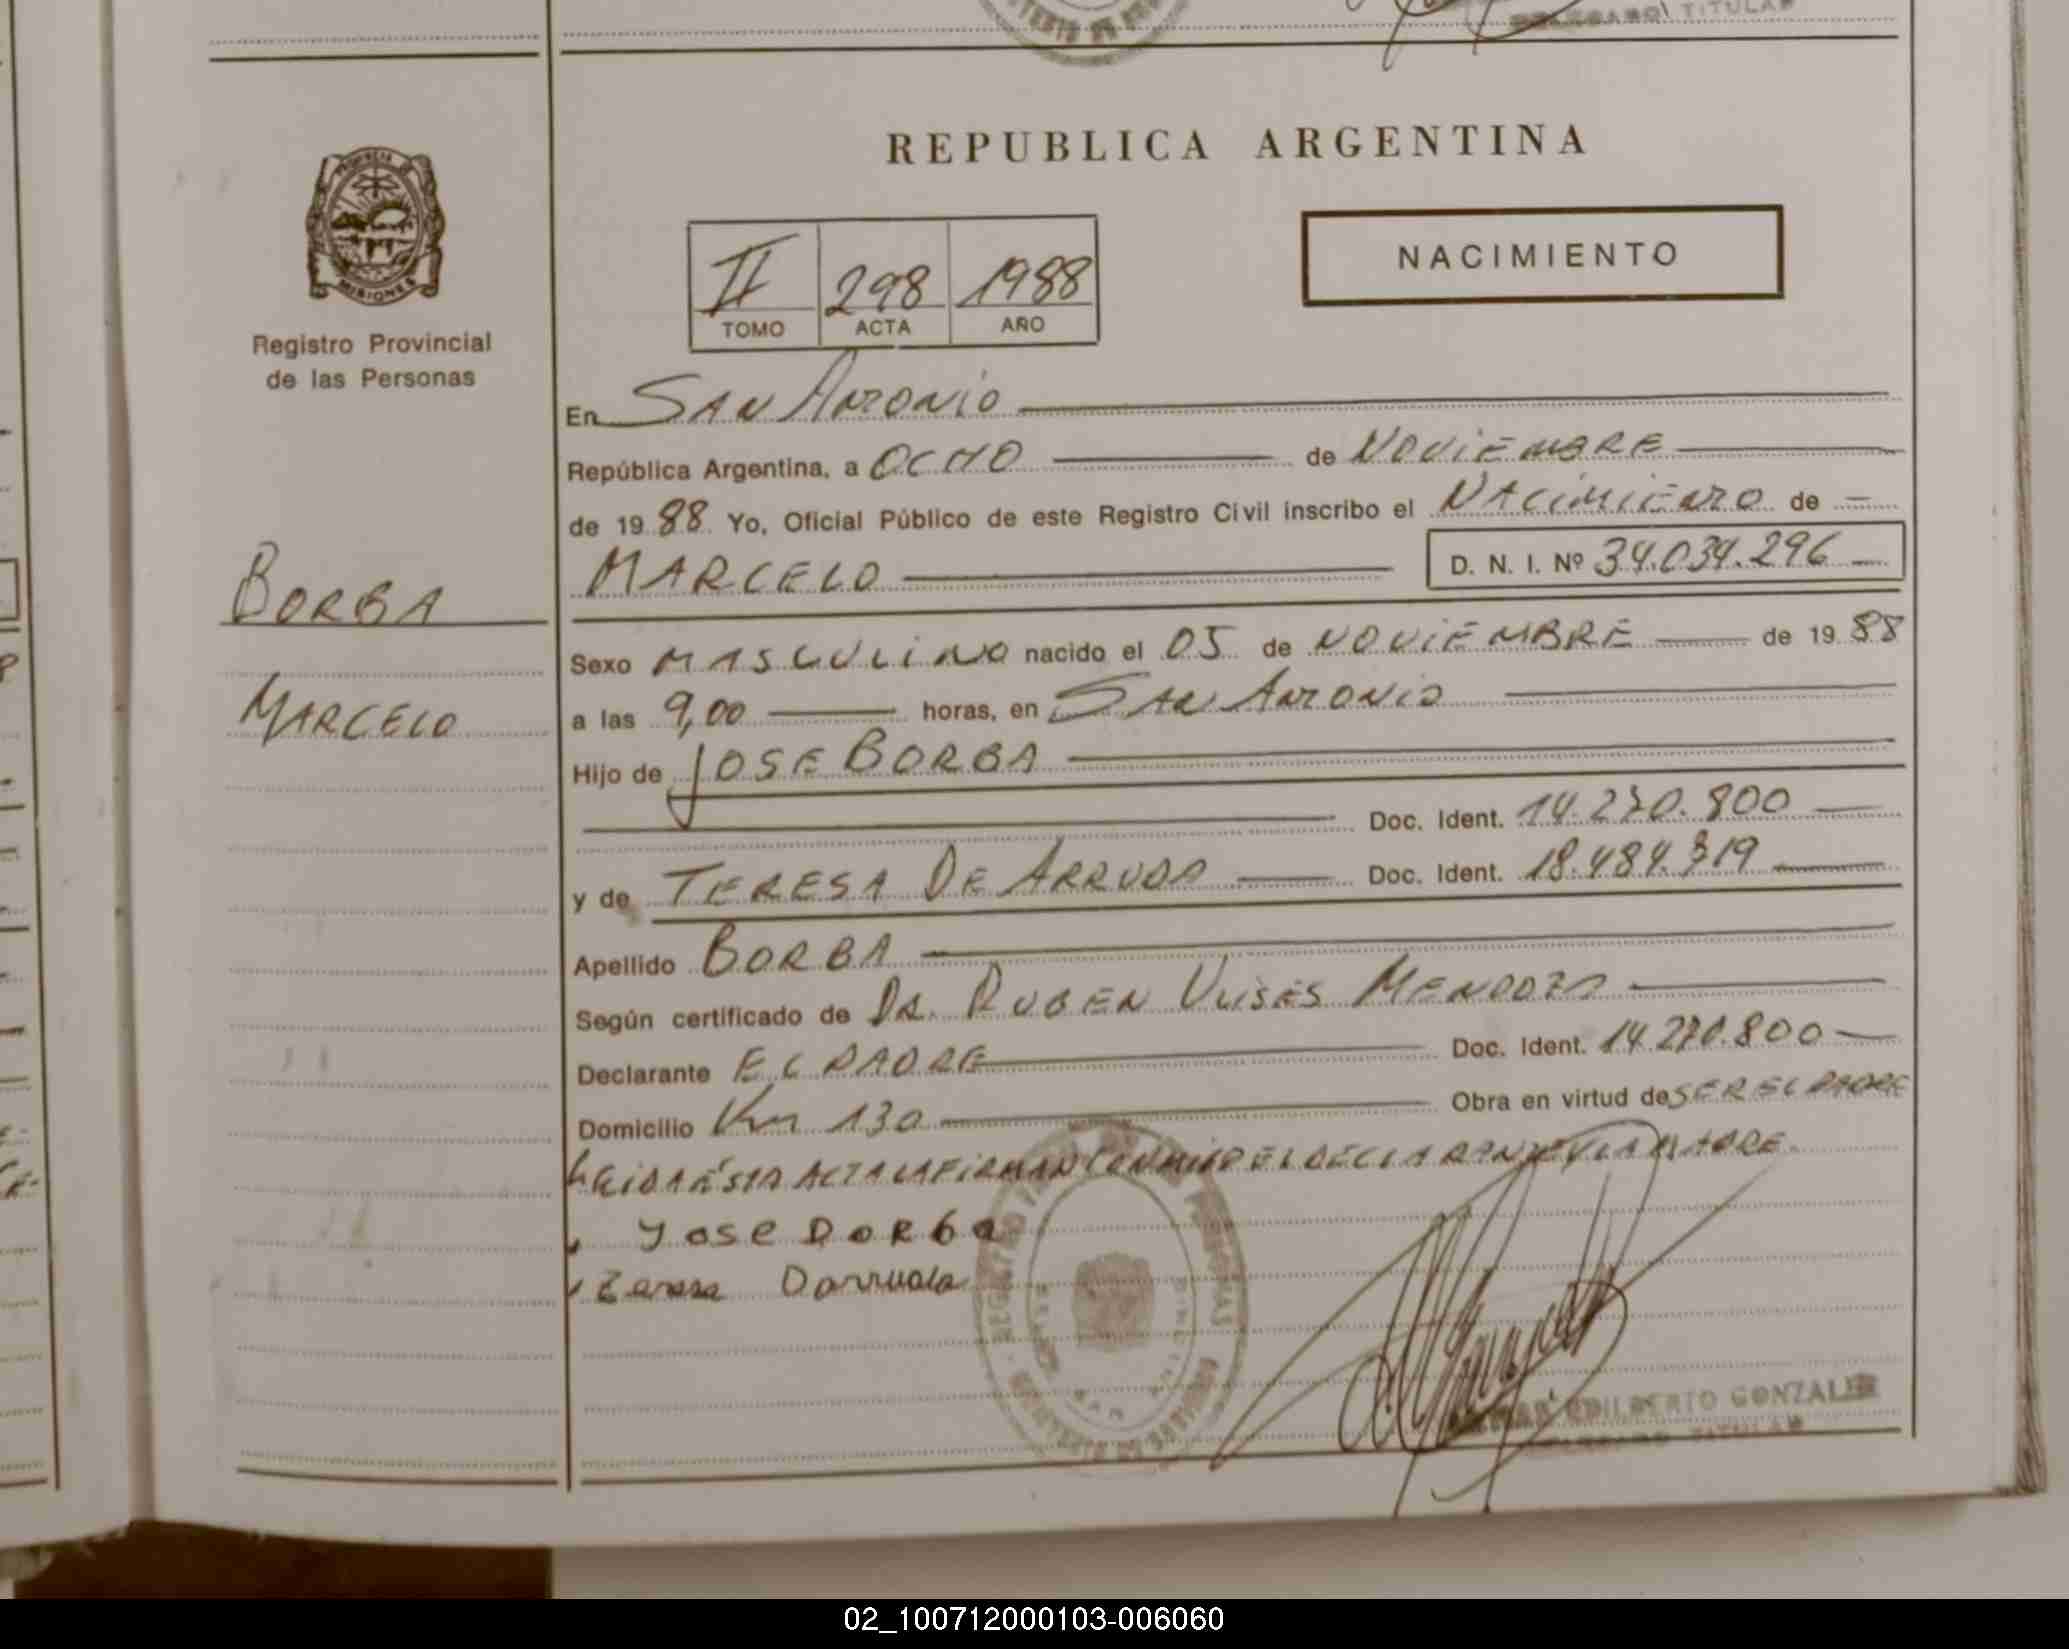 DELEGADO TITULAR
REPUBLICA ARGENTINA
PROVINCIA DE
MISIONES
Registro Provincial
de las Personas
II 298 1988
TOMO ACTA AÑO
NACIMIENTO
BORBA
MARCELO
En SAN ANTONIO
República Argentina, a OCHO de NOVIEMBRE
de 1988 Yo, Oficial Público de este Registro Civil inscribo el NACIMIENTO de
MARCELO D. N. I. Nº 34.034.296
Sexo MASCULINO nacido el 05 de NOVIEMBRE de 1988
a las 9,00 horas, en SAN ANTONIO
Hijo de JOSE BORBA
Doc. Ident. 14.270.800
y de TERESA DE ARRUDA Doc. Ident. 18.484.319
Apellido BORBA
Según certificado de DR. RUBEN ULISES MENDOZA
Declarante EL PADRE Doc. Ident. 14.270.800
Domicilio Km 130 Obra en virtud de SER EL PADRE
LEIDA ÉSTA ACTA LA FIRMAN CONMIGO EL DECLARANTE Y LA MADRE.
Jose Dorba
Darruda
EDILBERTO GONZALEZ
DELEGADO TITULAR
02_100712000103-006060